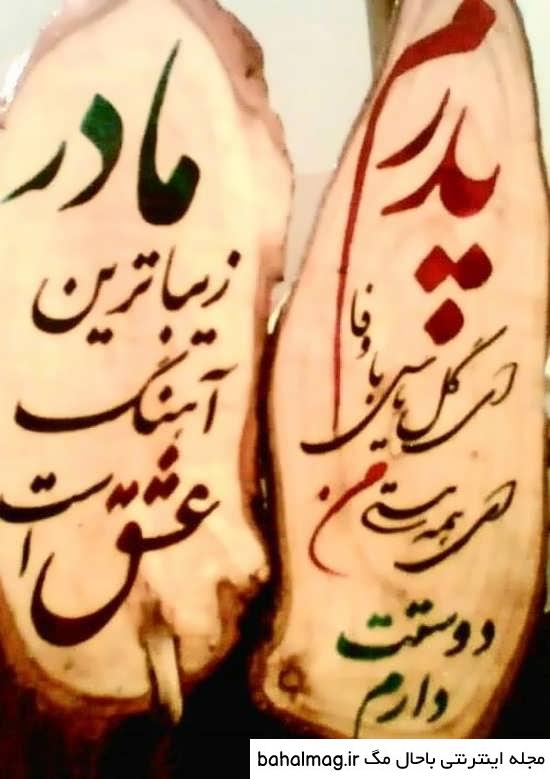 پدرم
ای گل یاس باوفا
ای همه هستی من
دوستت
دارم
مادر
زیباترین
آهنگ
عشق
است
مجله اینترنتی باحال مگ bahalmag.ir